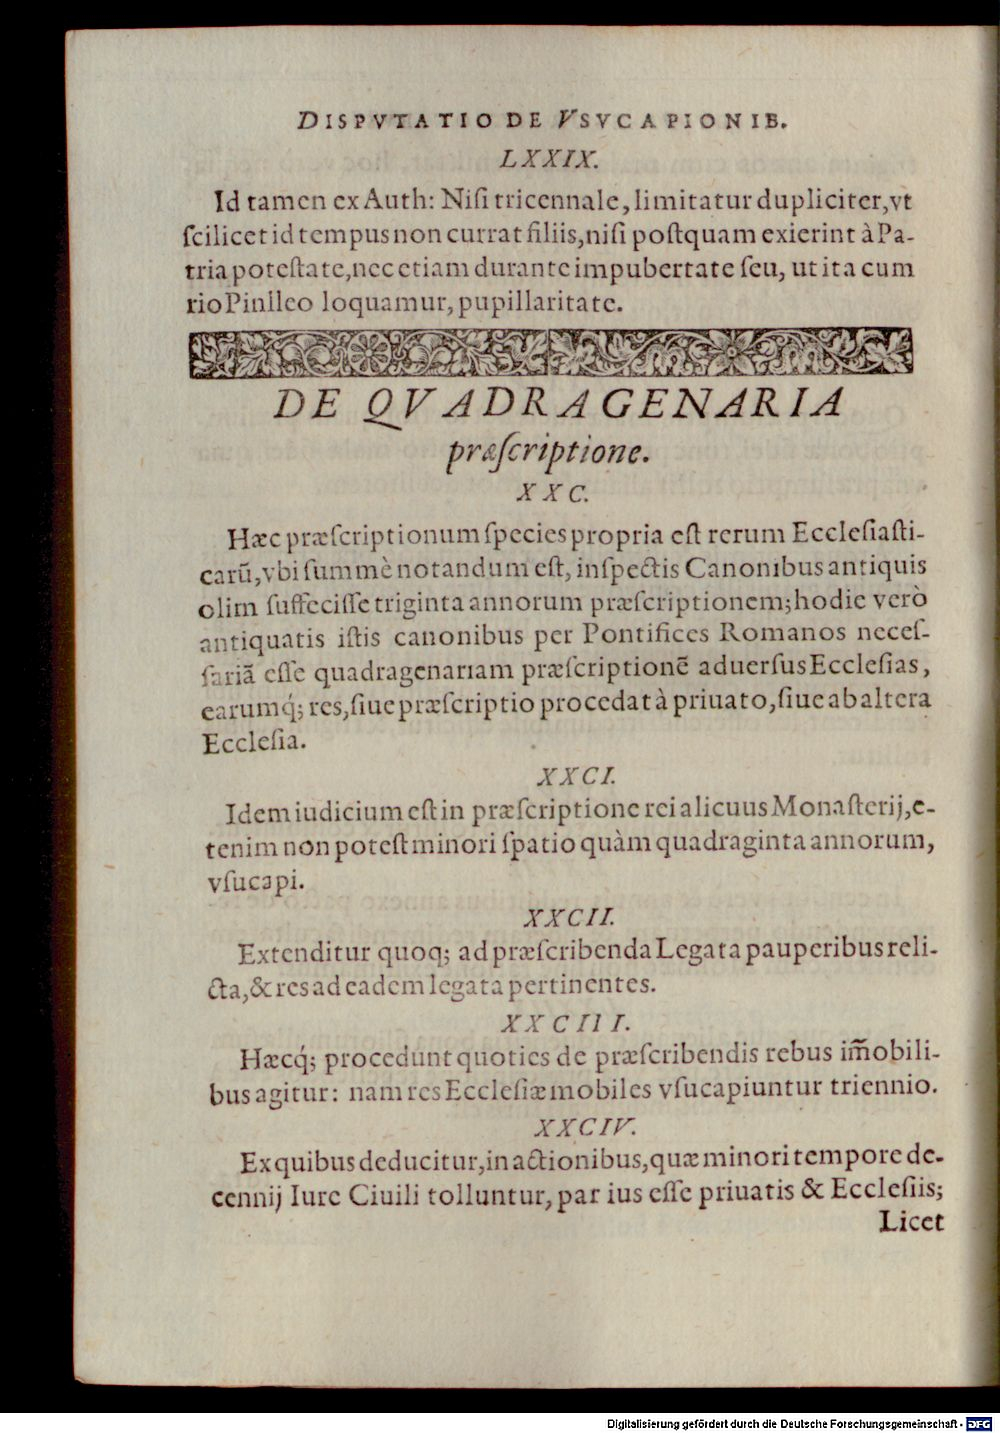 DISPVTATIO DE VSVCAPIONIB.
LXXIX.
Id tamen ex Auth: Niſi tricennale, limitatur dupliciter, vt
ſcilicet id tempus non currat filiis, niſi poſtquam exierint à Pa-
tria poteſtate, nec etiam durante impubertate ſeu, ut ita cum
rio Pinileo loquamur, pupillaritate.
DE QVADRAGENARIA
præſcriptione.
XXC.
Hæc præſcriptionum ſpecies propria eſt rerum Eccleſiaſti-
carū, vbi ſummè notandum eſt, inſpectis Canonibus antiquis
olim ſuffeciſſe triginta annorum præſcriptionem; hodie verò
antiquatis iſtis canonibus per Pontifices Romanos neceſ-
ſariā eſſe quadragenariam præſcriptionē aduerſus Eccleſias,
earumq́; res, ſiue præſcriptio procedat à priuato, ſiue ab altera
Eccleſia.
XXCI.
Idem iudicium eſt in præſcriptione rei alicuus Monaſterij, e-
tenim non poteſt minori ſpatio quàm quadraginta annorum,
vſucapi.
XXCII.
Extenditur quoq; ad præſcribenda Legata pauperibus reli-
cta, & res ad eadem legata pertinentes.
XXCIII.
Hæcq́; procedunt quoties de præſcribendis rebus im̄obili-
bus agitur: nam res Eccleſiæ mobiles vſucapiuntur triennio.
XXCIV.
Ex quibus deducitur, in actionibus, quæ minori tempore de-
cennij Iure Ciuili tolluntur, par ius eſſe priuatis & Eccleſiis;
Licet
Digitalisierung gefördert durch die Deutsche Forschungsgemeinschaft - DFG